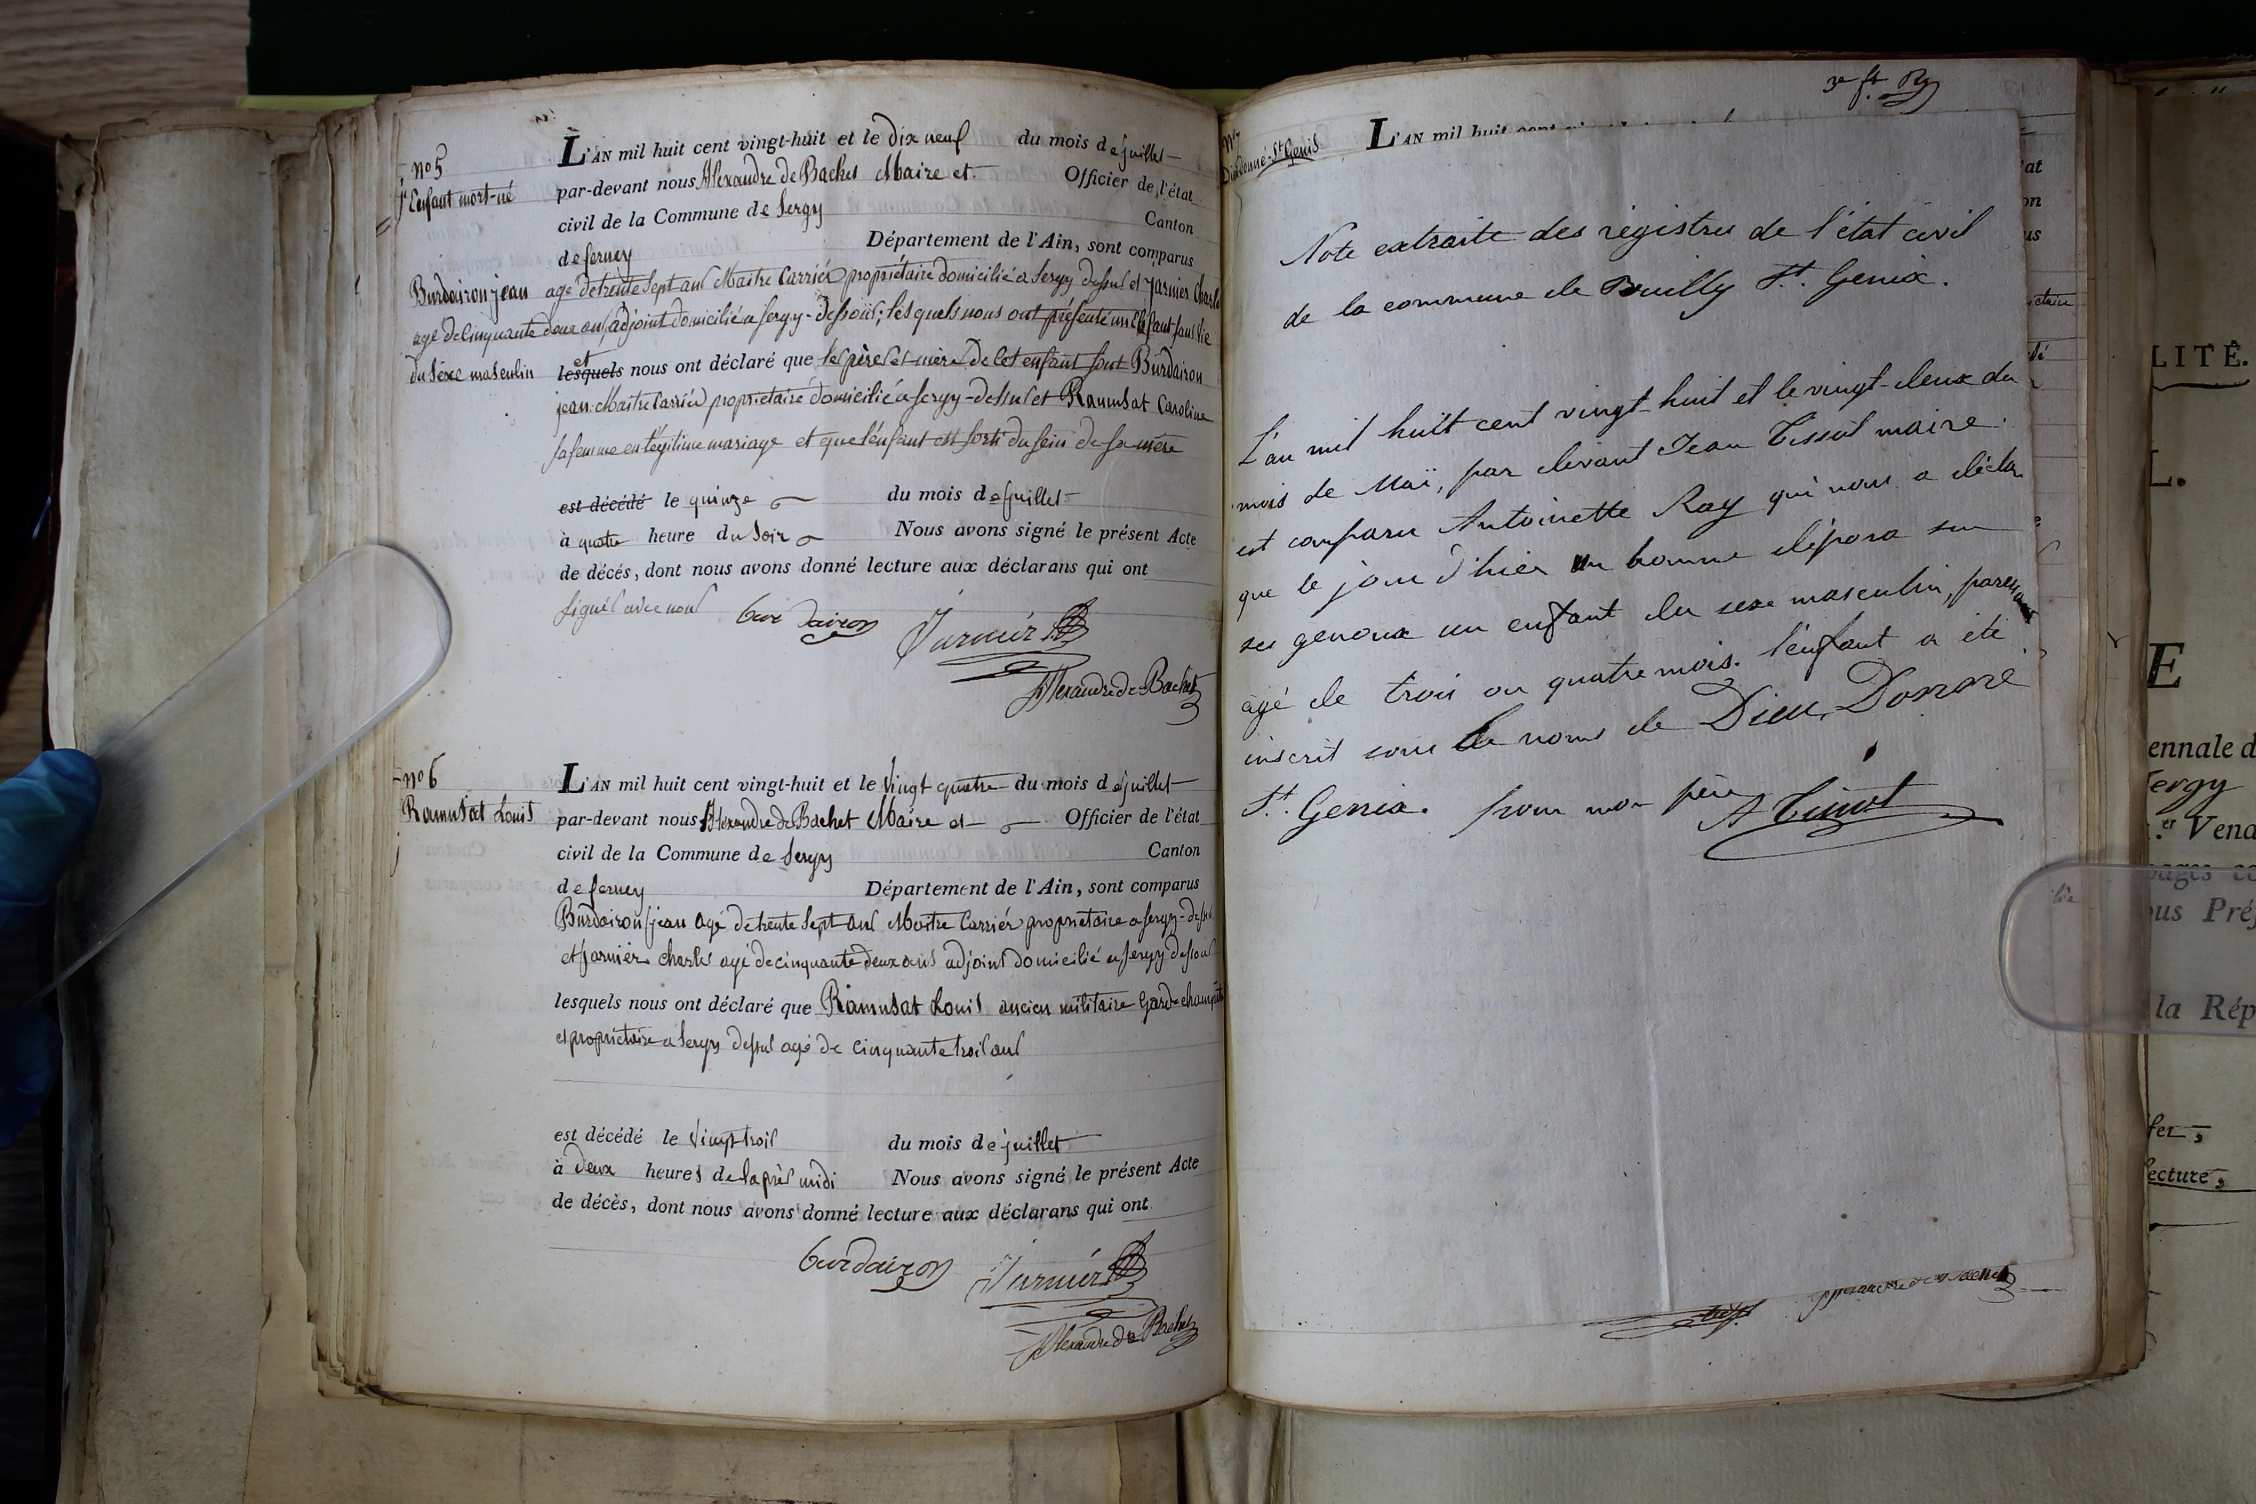 N° 5
L'Enfant mort-né
L'AN mil huit cent vingt-huit et le dix neuf du mois de juillet
par-devant nous Alexandre de Bachet Maire et Officier de l'état
civil de la Commune de Sergy Canton
de ferney Département de l'Ain, sont comparus
Burdairon jean agé de trente sept ans Maitre Carrier propriétaire domicilié a Sergy dessus et Jarnier Charles
agé de Cinquante deux ans, adjoint domicilié a Sergy-dessous; lesquels nous ont présenté un Enfant sans vie
du séxe masculin et lesquels nous ont déclaré que les père et mère de cet enfant sont Burdairon
jean Maitre Carrier propriétaire domicilié a sergy-dessus et Ramusat Caroline
sa femme en légitime mariage et que l'énfant est sorti du sein de sa mère
est décédé le quinze du mois de juillet
à quatre heure du soir Nous avons signé le présent Acte
de décés, dont nous avons donné lecture aux déclarans qui ont
signés avec nous Burdairon Jarnier
Alexandre de Bachet
N° 6
Ramusat Louis
L'AN mil huit cent vingt-huit et le vingt quatre du mois de juillet
par-devant nous Alexandre de Bachet Maire et Officier de l'état
civil de la Commune de Sergy Canton
de ferney Département de l'Ain, sont comparus
Burdairon jean agé de trente sept ans Maitre Carriér propriétaire a sergy-dessus
et jarniér charles agé de cinquante deux ans adjoint domicilié a sergy dessous
lesquels nous ont déclaré que Ramusat Louis ancien militaire garde-champêtre
et propriétaire a Sergy dessus agé de Cinquante trois ans
est décédé le vingt trois du mois de juillet
à deux heures de laprès midi Nous avons signé le présent Acte
de décès, dont nous avons donné lecture aux déclarans qui ont
Burdairon Jarniér
Alexandre de Bachet
3e ft
N° 7
Dieudonné-St Genis
L'AN mil huit cent
Note extraite des régistres de l'état civil
de la commune de Pouilly St. Genix.
L'an mil huit cent vingt-huit et le vingt-deux du
mois de Maï, par devant Jean Tissot maire
est comparu Antoinette Ray qui nous a déclaré
que le jour d'hier un homme déposa sur
ses genoux un enfant du sexe masculin, paraissant
agé de trois ou quatre mois. l'enfant a été
inscrit sous le nom de Dieu-Donné
St. Genix. pour mon père
A Tissot
Alexandre de Bachet
LITÉ.
L.
E
ennale d
Sergy
er Vend
pages co
ous Préf
la Rép
fer,
lecture,